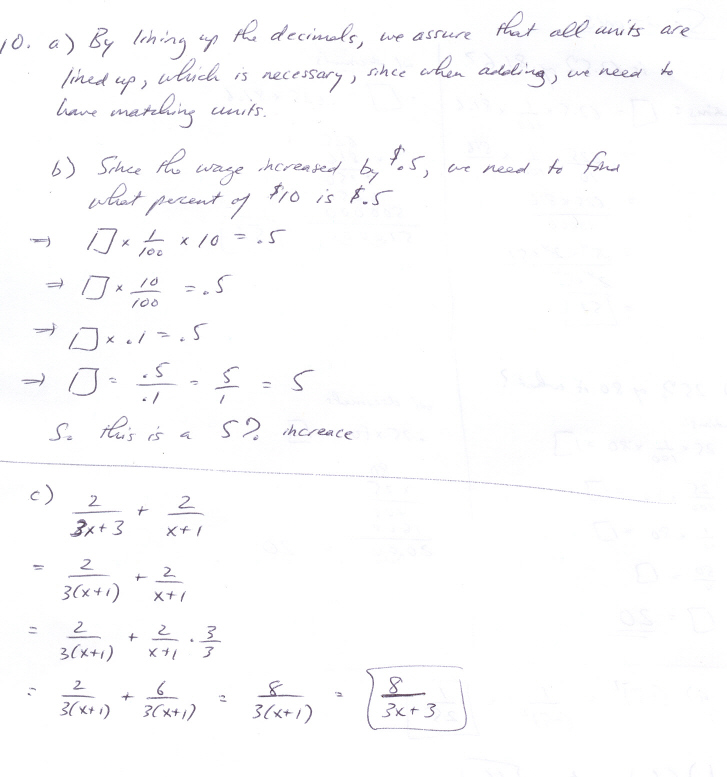 10. a) By lining up the decimals, we assure that all units are
lined up, which is necessary, since when adding, we need to
have matching units.
b) Since the wage increased by $.5, we need to find
what percent of $10 is $.5
⇒ □ × 1/100 × 10 = .5
⇒ □ × 10/100 = .5
⇒ □ × .1 = .5
⇒ □ = .5/.1 = 5/1 = 5
So this is a 5% increace
c) 2/(3x+3) + 2/(x+1)
= 2/(3(x+1)) + 2/(x+1)
= 2/(3(x+1)) + 2/(x+1) · 3/3
= 2/(3(x+1)) + 6/(3(x+1)) = 8/(3(x+1)) = 8/(3x+3)